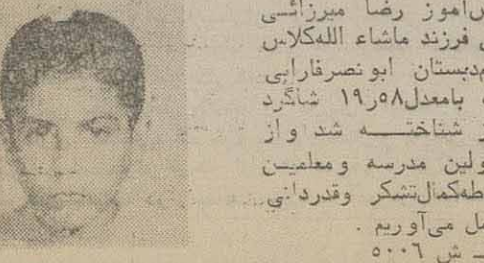 ش‌آموز رضا میرزائی
فرزند ماشاء الله‌کلاس
دبستان ابونصرفارابی
بامعدل۱۹ر۵۸ شاگرد
شناخته شد و از
ولین مدرسه و معلمین
طه‌کمال‌تشکر وقدردانی
مل می‌آوریم .
ش ۵۰۰۶